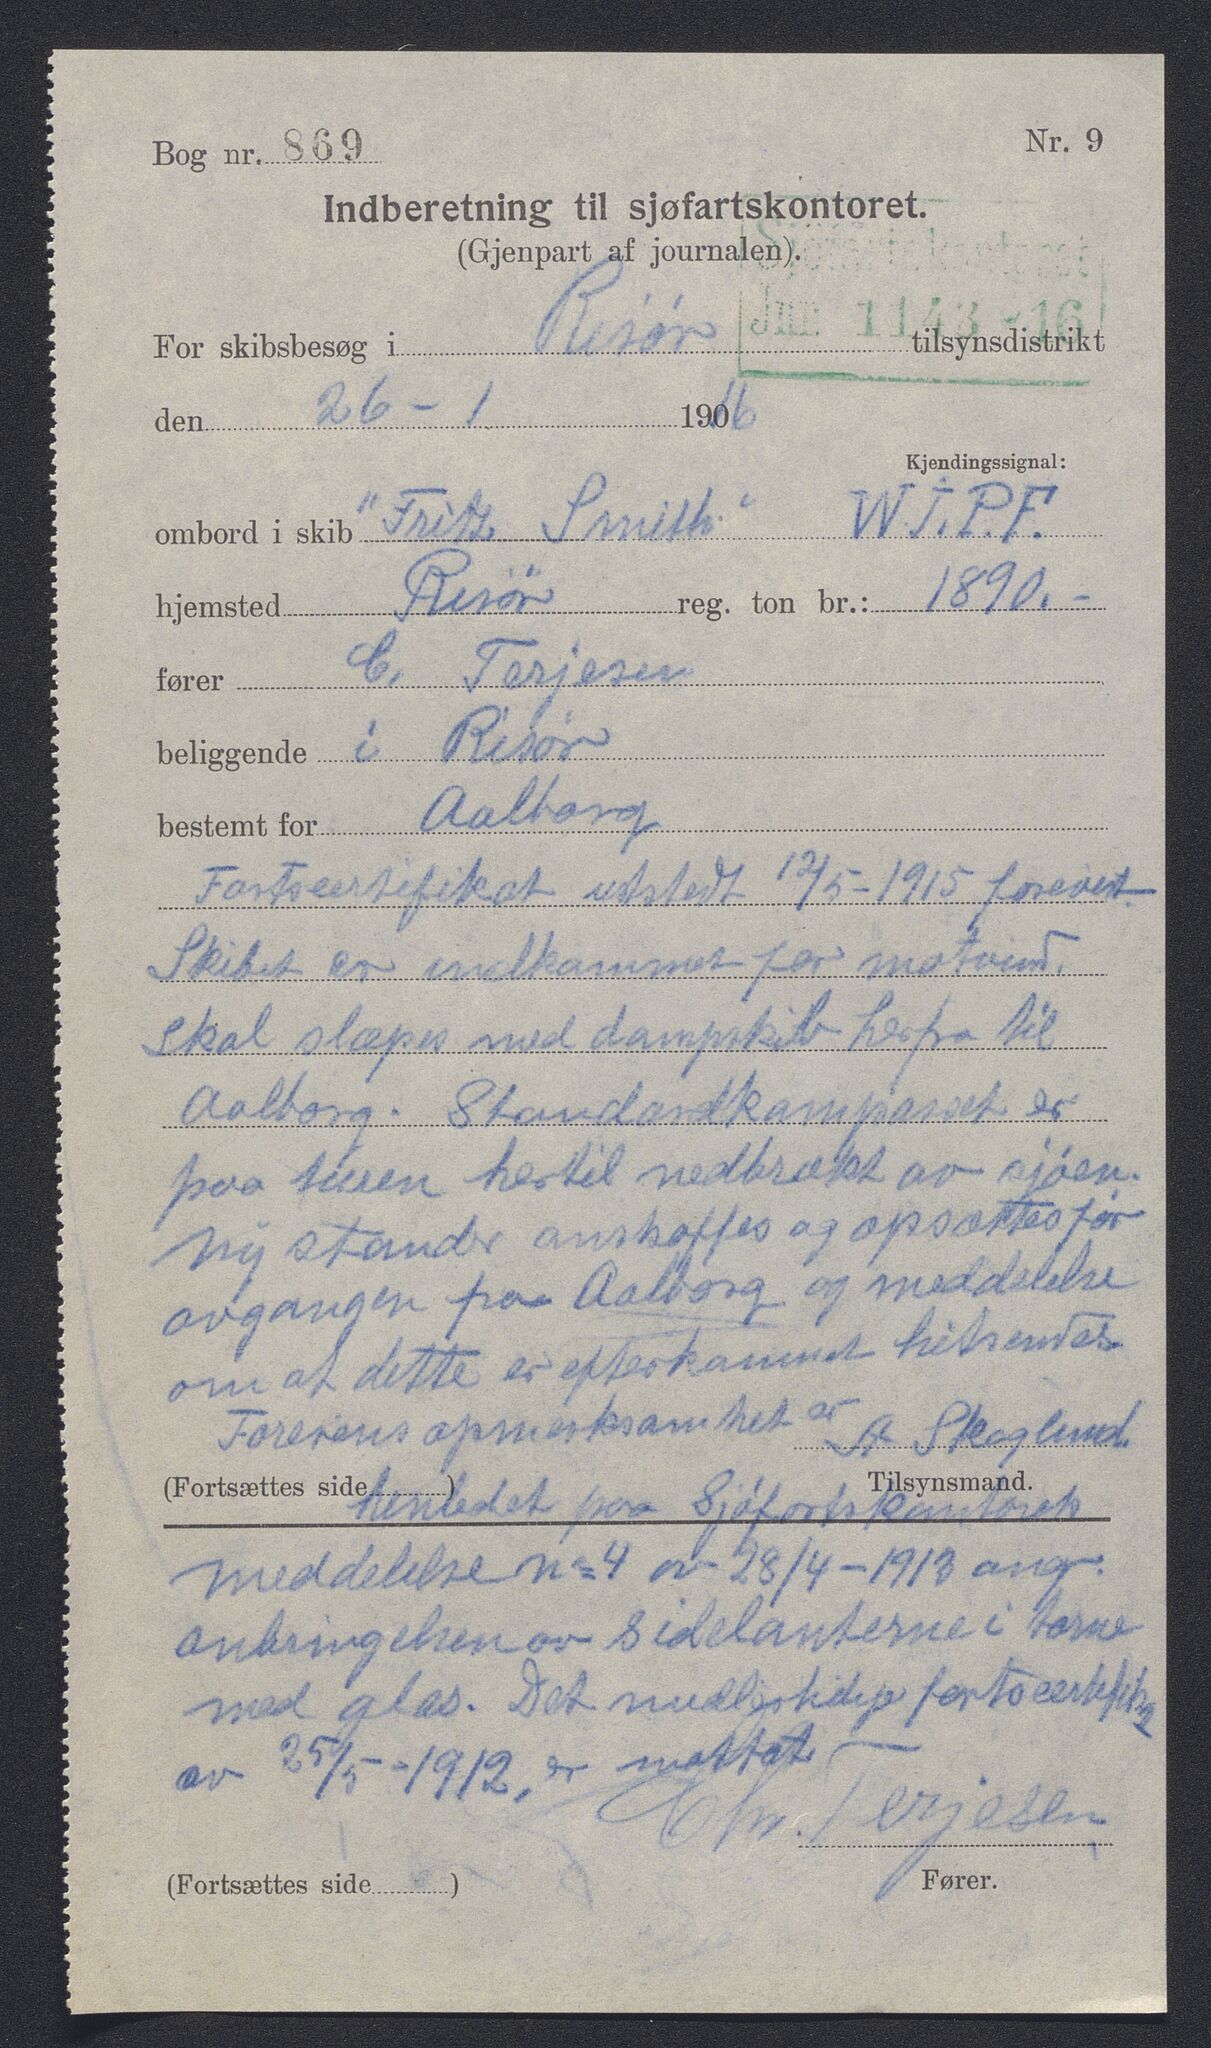 Bog nr. 869
Nr. 9
Indberetning til sjøfartskontoret.
(Gjenpart af journalen).
Jnr. 1143 - 16
For skibsbesøg i Risør tilsynsdistrikt
den 26 - 1 190 16
Kjendingssignal:
ombord i skib "Fritz Smith" W.J.P.F.
hjemsted Risør reg. ton br.: 1890.-
fører C. Terjesen
beliggende i Risør
bestemt for Aalborg
Fartscertifikat utstedt 12/5 - 1915 forevist.
Skibet er indkommet for motvind.
Skal slæpes med dampskib herfra til
Aalborg. Standardkompasset er
paa turen hertil nedbrækt av sjøen.
Ny stander anskaffes og opsættes før
avgangen paa Aalborg og meddelelse
om at dette er efterkommet hitsendes
Førerens opmerksomhet er A Skoglund.
(Fortsættes side ) Tilsynsmand.
henledet paa Sjøfartskontorets
meddelelse n= 4 av 28/4 - 1913 ang.
anbringelsen av sidelanterne i tarne
med glas. Det midlertidige fartscertifikat
av 25/5 - 1912, er mottat
Chr. Terjesen
(Fortsættes side ) Fører.